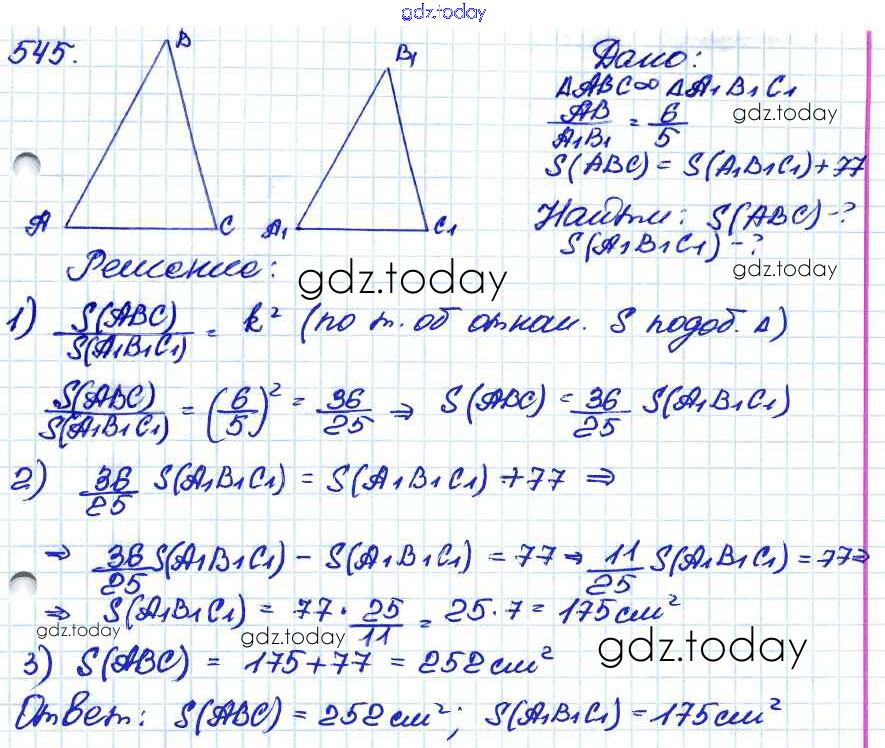 gdz.today
545.
B
B₁
A
C
A₁
C₁
Дано:
△ABC∞ △A₁B₁C₁
AB/A₁B₁ = 6/5
gdz.today
S(ABC) = S(A₁B₁C₁)+77
Найти: S(ABC)-?
S(A₁B₁C₁)-?
gdz.today
Решение:
gdz.today
1) S(ABC)/S(A₁B₁C₁) = k² (по т. об отнош. S подоб. △)
S(ABC)/S(A₁B₁C₁) = (6/5)² = 36/25 ⇒ S(ABC) = 36/25 S(A₁B₁C₁)
2) 36/25 S(A₁B₁C₁) = S(A₁B₁C₁) +77 ⇒
⇒ 36/25 S(A₁B₁C₁) - S(A₁B₁C₁) = 77 ⇒ 11/25 S(A₁B₁C₁) = 77⇒
⇒ S(A₁B₁C₁) = 77 · 25/11 = 25·7 = 175см²
gdz.today
gdz.today
gdz.today
3) S(ABC) = 175+77 = 252см²
Ответ: S(ABC) = 252см²; S(A₁B₁C₁) = 175см²